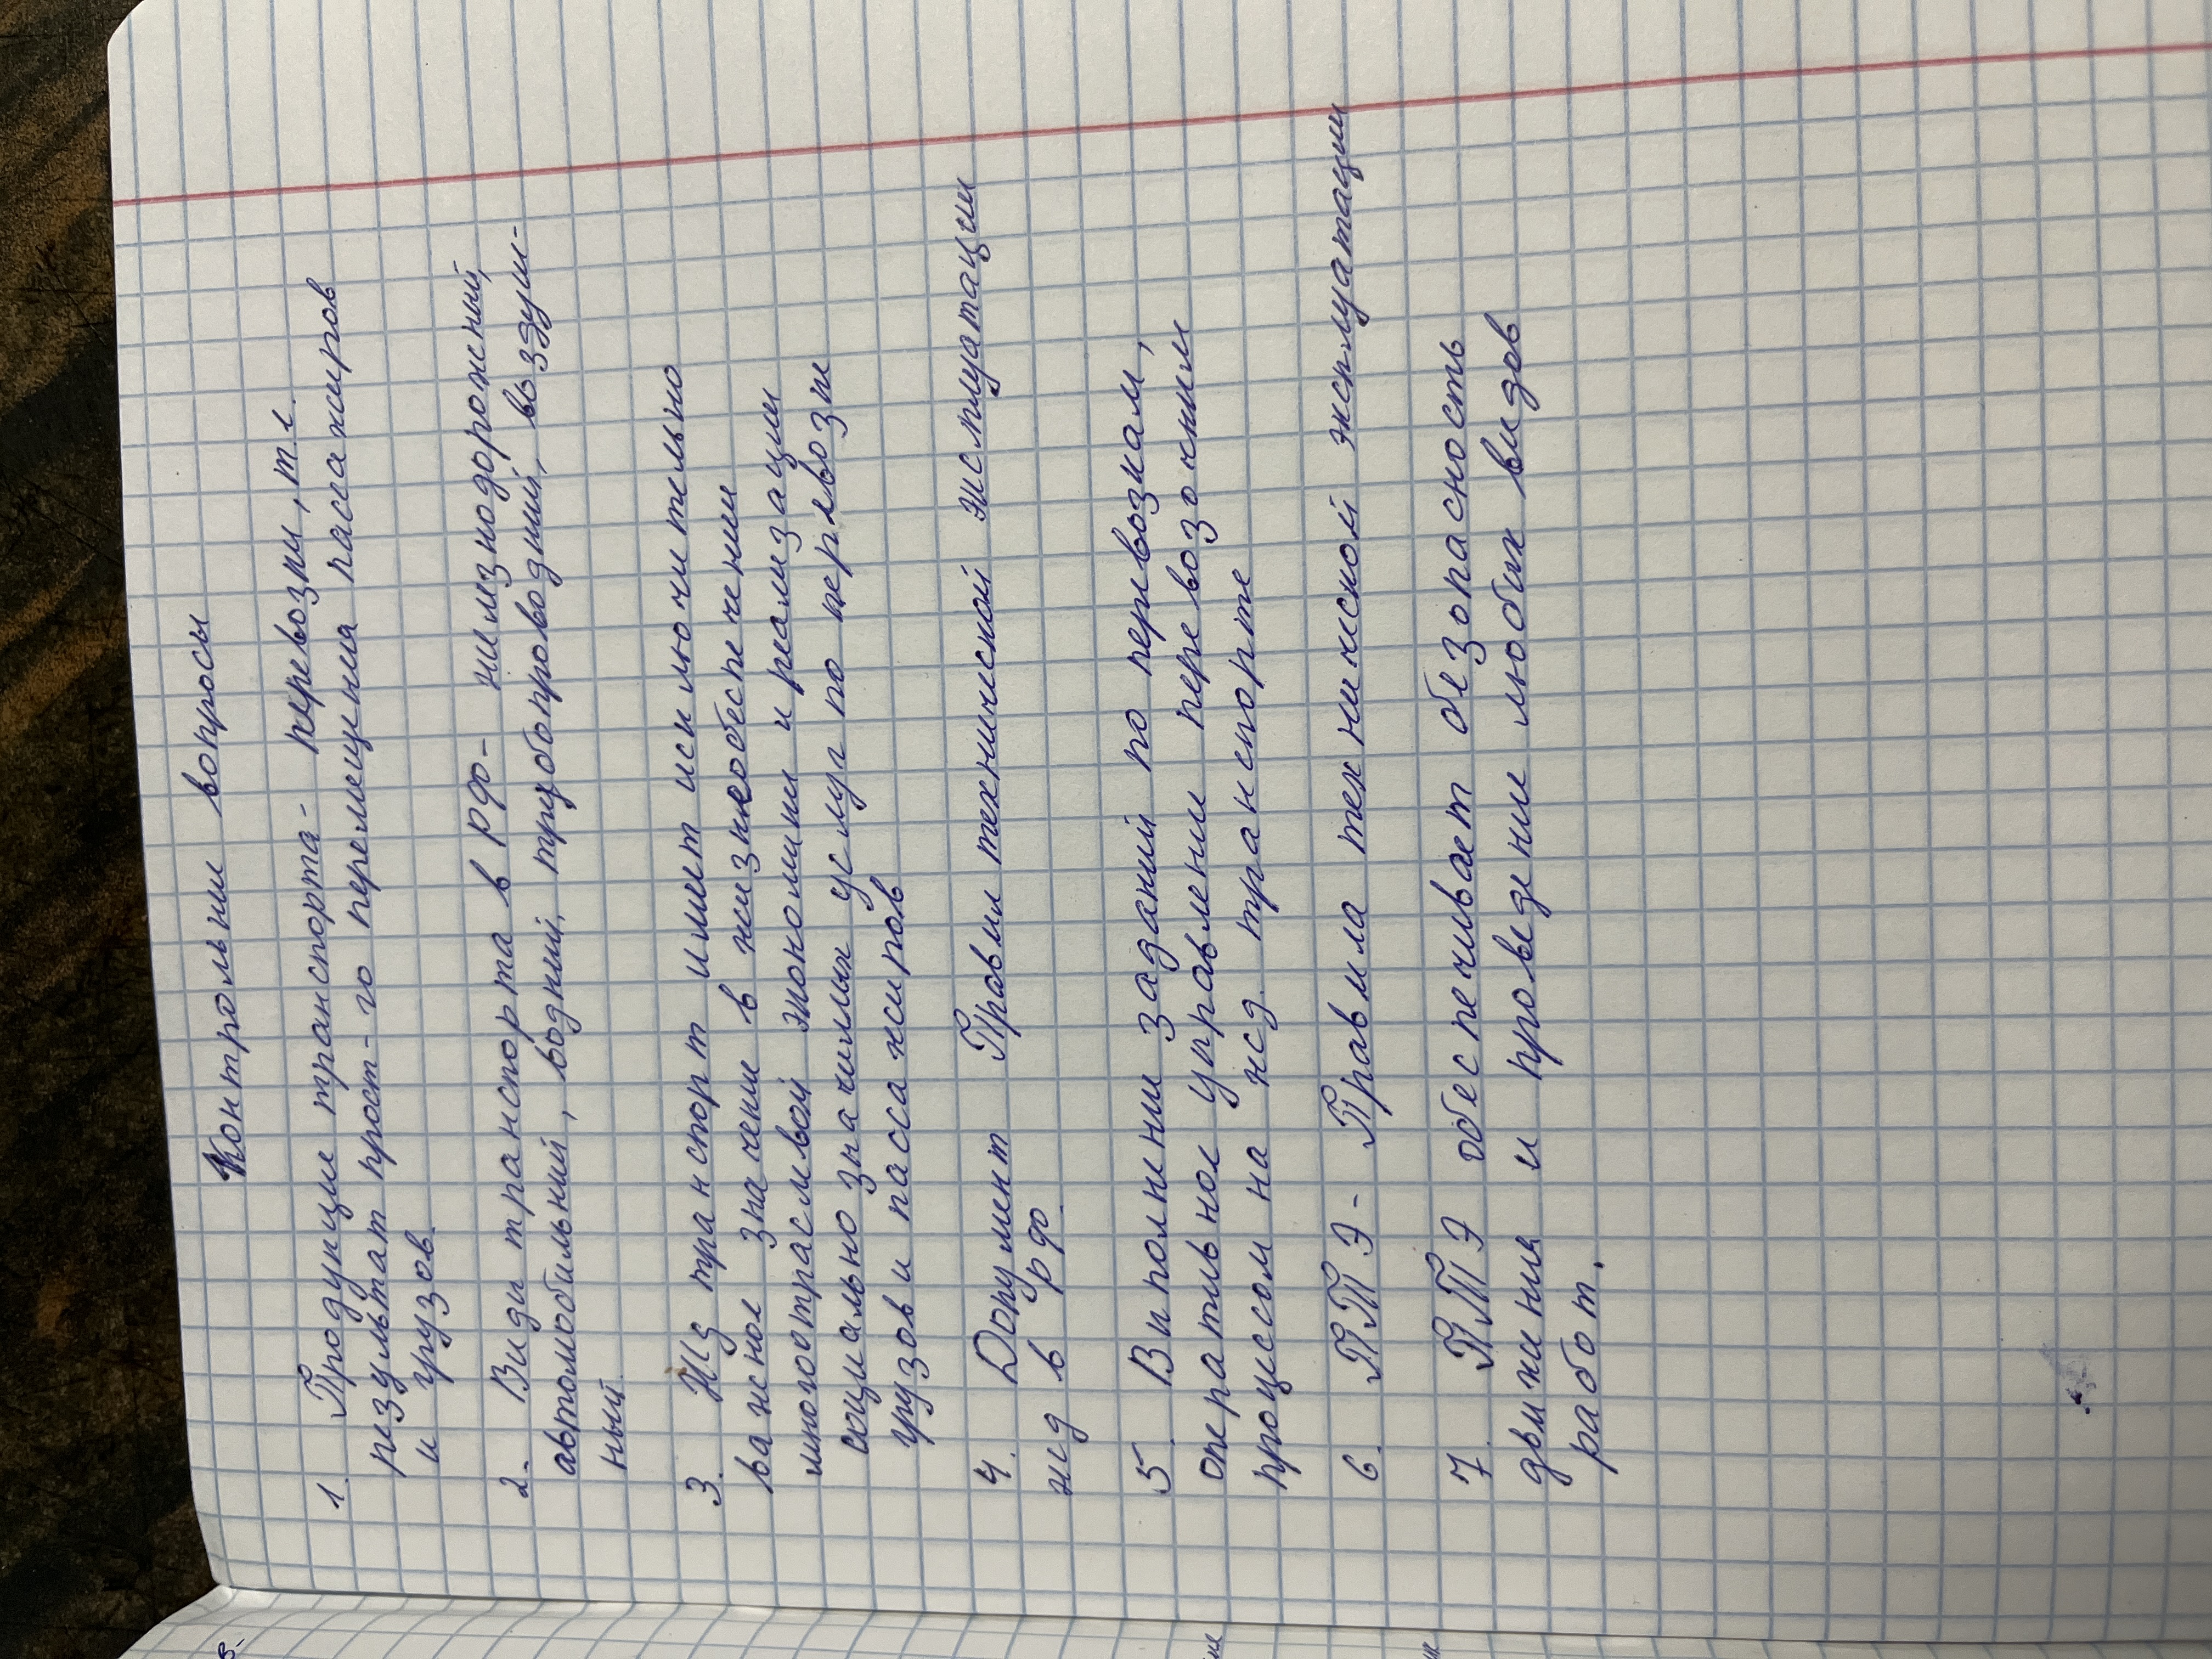 Контрольни вопросы
1. Продукция транспорта - перевозки, т.е.
результат прост-го перемещения пассажиров
и грузов.
2. Види транспорта в РФ - железнодорожний,
автомобильний, водний, трубопроводний, воздуш-
ный.
3. Жд транспорт имеет исключительно
важное значение в жизнеобеспечении
многоотраслевой экономики и реализации
социально значимых услуг по перевозке
грузов и пассажиров
4. Документ Правил технической эксплуатации
жд в РФ.
5. Виполнение заданий по перевозкам,
оперативное управление перевозочним
процессом на жд. транспорте
6. ПТЭ - Правила технической эксплуатации
7. ПТЭ обеспечивает безопасность
движения и проведение любых видов
работ.